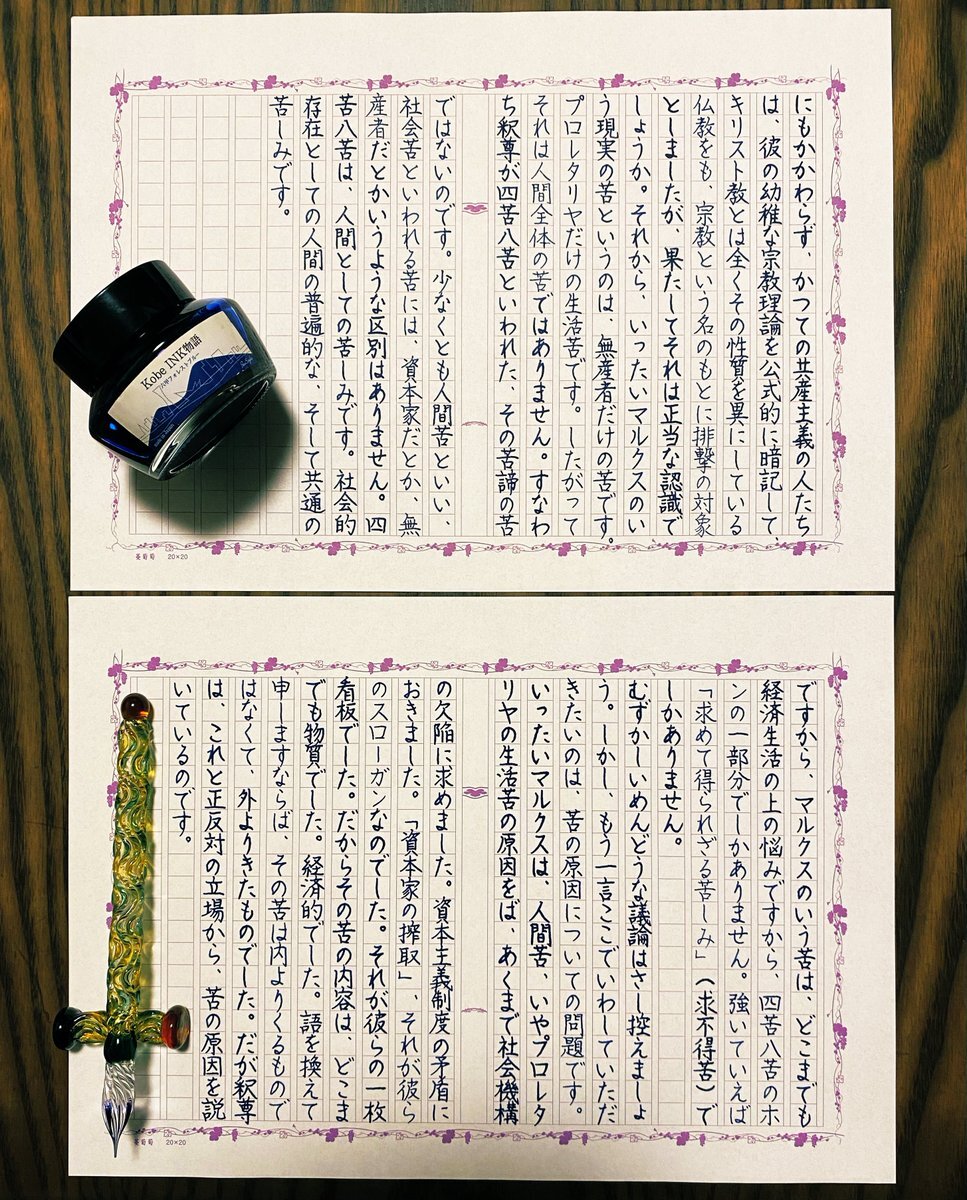 にもかかわらず、かつての共産主義の人たち
は、彼の幼稚な宗教理論を公式的に暗記して、
キリスト教とは全くその性質を異にしている
仏教をも、宗教という名のもとに排撃の対象
としましたが、果たしてそれは正当な認識で
しょうか。それから、いったいマルクスのい
う現実の苦というのは、無産者だけの苦です。
プロレタリヤだけの生活苦です。したがって
それは人間全体の苦ではありません。すなわ
ち釈尊が四苦八苦といわれた、その苦諦の苦
ではないのです。少なくとも人間苦といい、
社会苦といわれる苦には、資本家だとか、無
産者だとかいうような区別はありません。四
苦八苦は、人間としての苦しみです。社会的
存在としての人間の普遍的な、そして共通の
苦しみです。
Kobe INK物語
六甲フォレストブルー
20×20
ですから、マルクスのいう苦は、どこまでも
経済生活の上の悩みですから、四苦八苦のホ
ンの一部分でしかありません。強いていえば
「求めて得られざる苦しみ」(求不得苦)で
しかありません。
むずかしいめんどうな議論はさし控えましょ
う。しかし、もう一言ここでいわしていただ
きたいのは、苦の原因についての問題です。
いったいマルクスは、人間苦、いやプロレタ
リヤの生活苦の原因をば、あくまで社会機構
の欠陥に求めました。資本主義制度の矛盾に
おきました。「資本家の搾取」、それが彼ら
のスローガンなのでした。それが彼らの一枚
看板でした。だからその苦の内容は、どこま
でも物質でした。経済的でした。語を換えて
申しますならば、その苦は内よりくるもので
はなくて、外よりきたものでした。だが釈尊
は、これと正反対の立場から、苦の原因を説
いているのです。
20×20